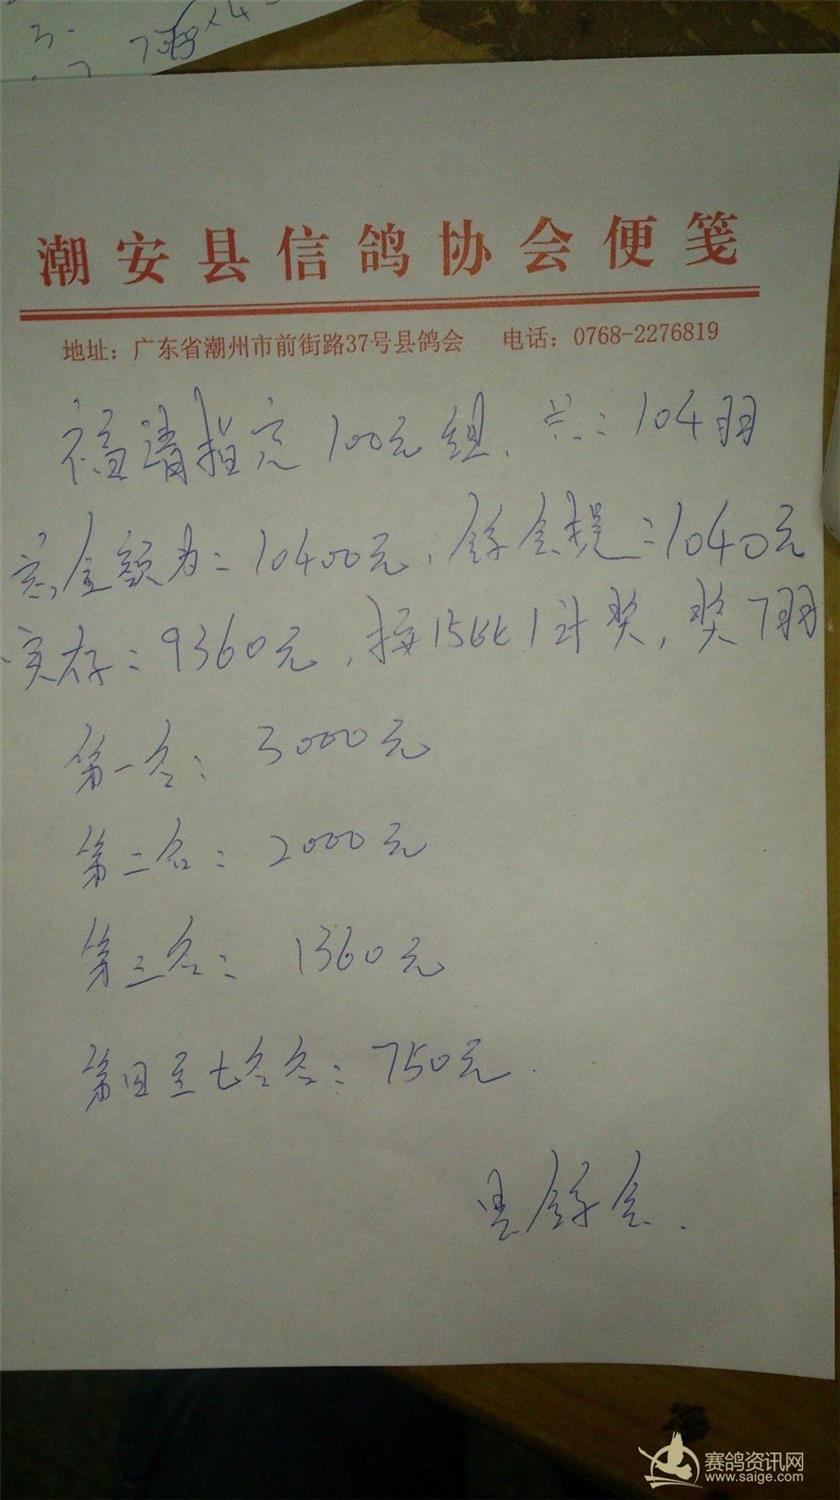 潮安县信鸽协会便笺
地址：广东省潮州市前街路37号县鸽会 电话：0768-2276819
福清指定100元组，共：104羽
总金额为：10400元，鸽会提：1040元
实存：9360元，按15比1计奖，奖7羽
第一名：3000元
第二名：2000元
第三名：1360元
第四至七名各：750元.
县鸽会.
赛鸽资讯网
www.saige.com